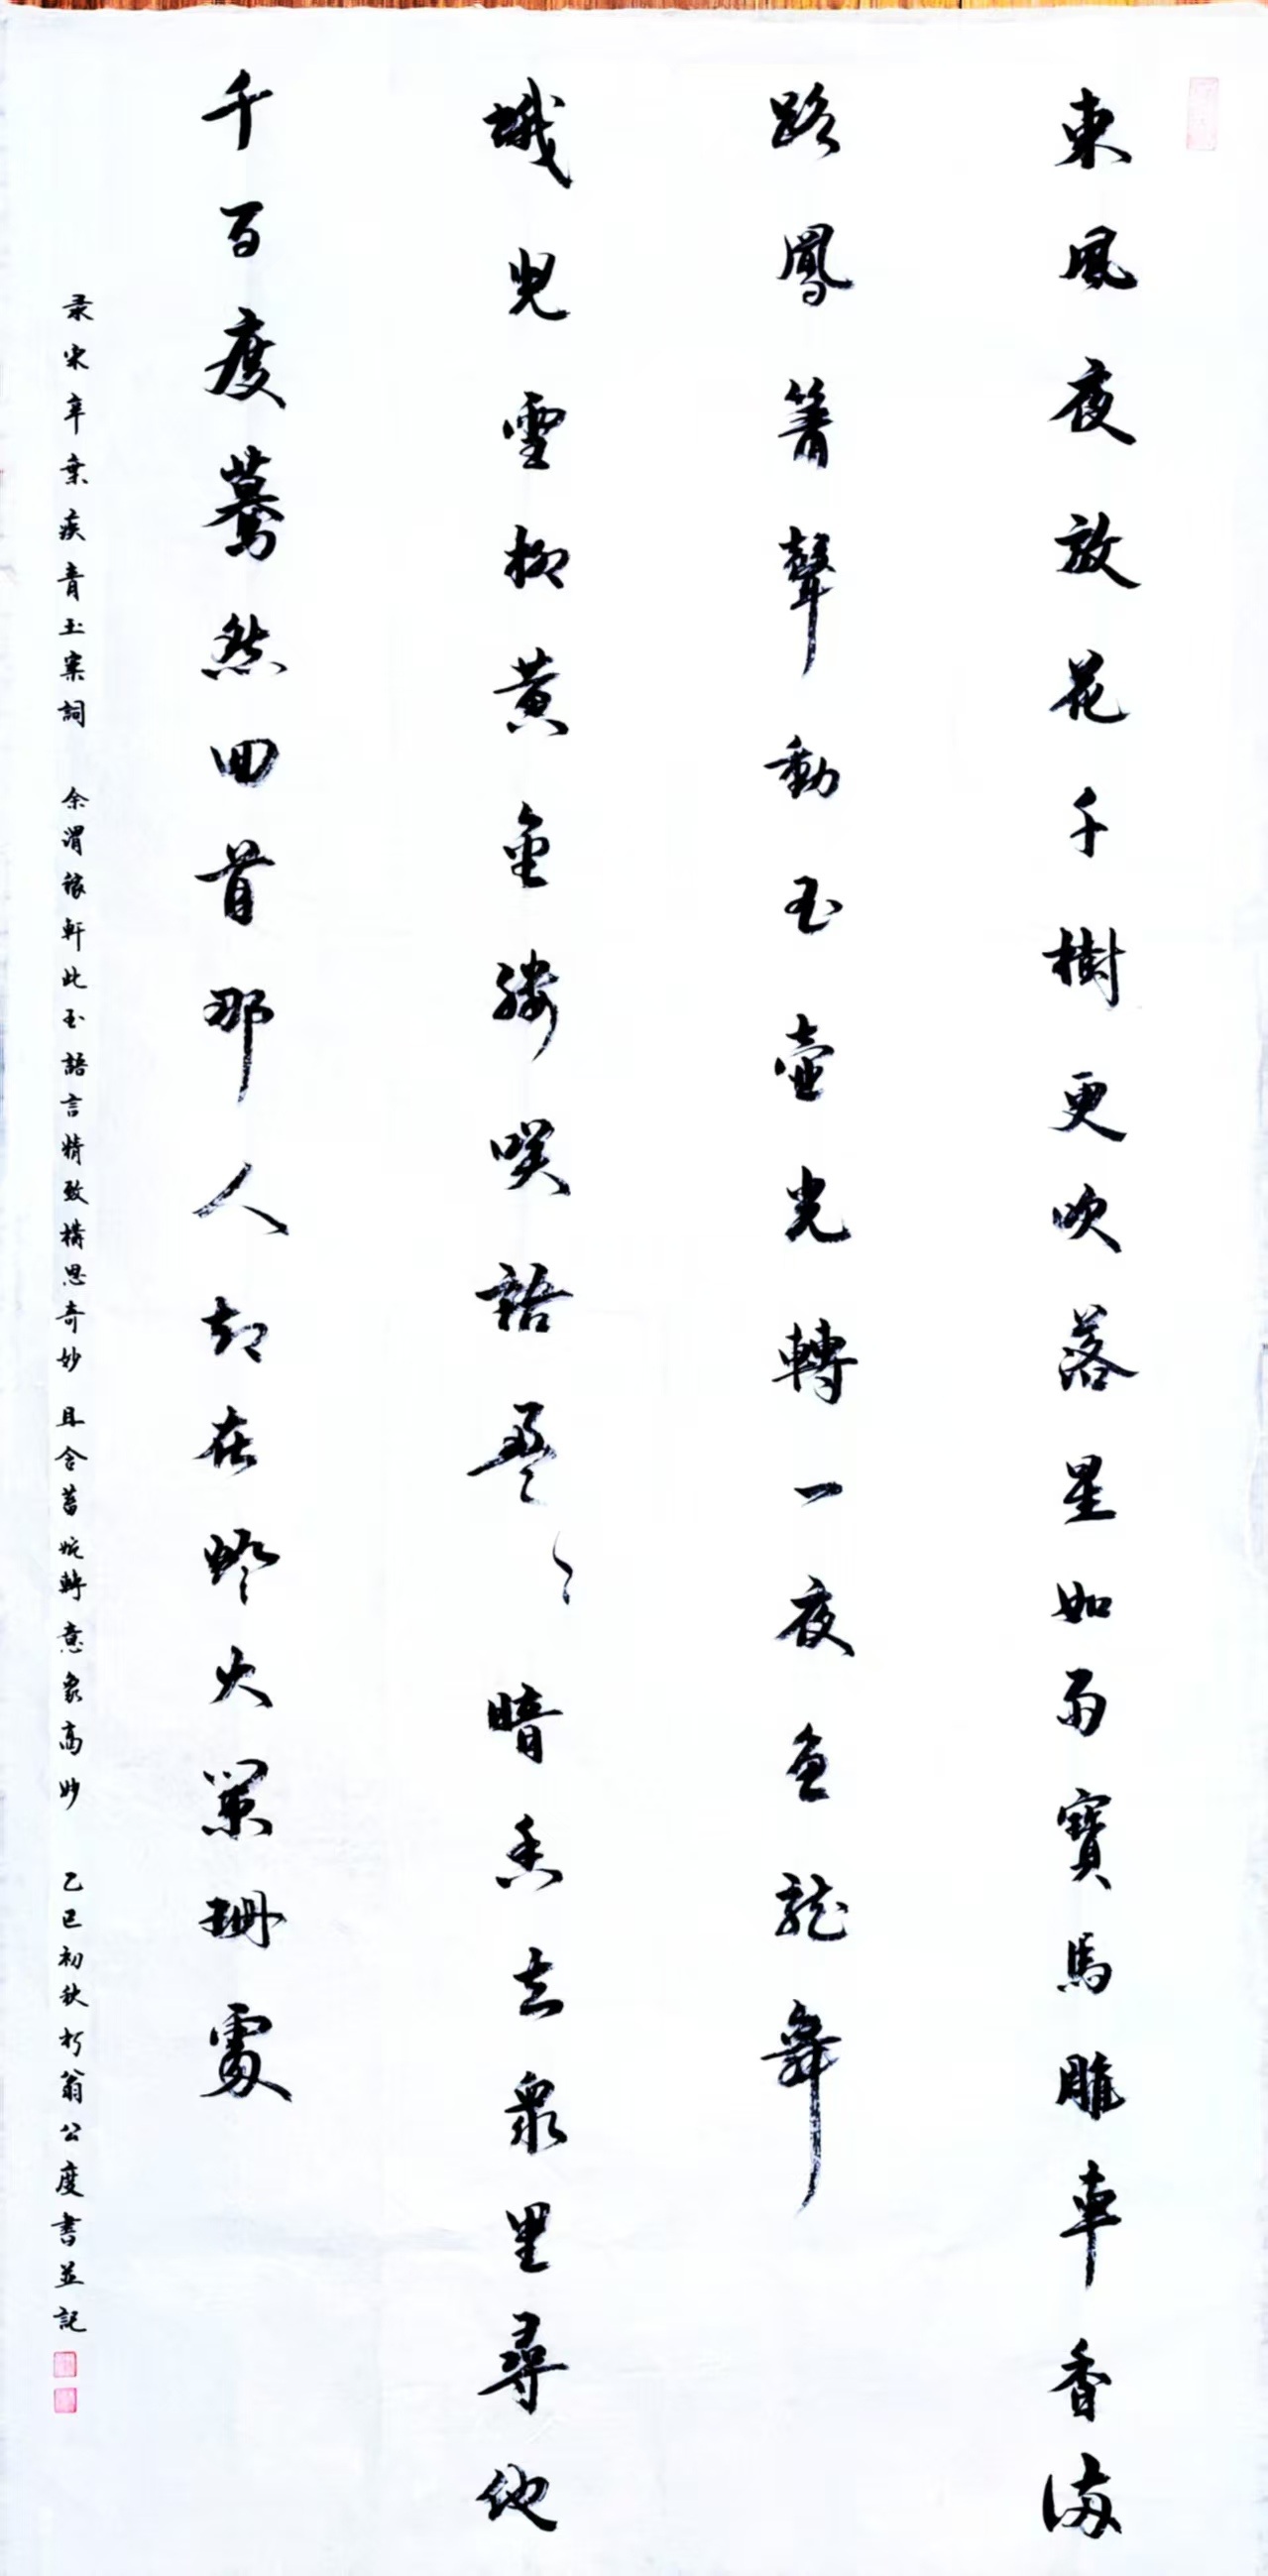 東風夜放花千樹更吹落星如雨寶馬雕車香滿
路鳳簫聲動玉壺光轉一夜魚龍舞
蛾兒雪柳黃金縷咲語盈〻暗香去衆里尋他
千百度驀然回首那人却在燈火闌珊處
录宋辛棄疾青玉案詞 余謂稼軒此玉語言精致構思奇妙 且含蓄婉轉意象高妙 乙巳初秋朽翁公度書並記